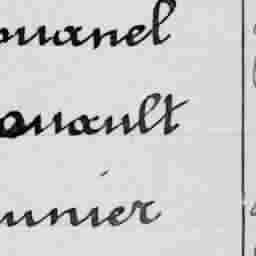 ouanel
ouault
unier